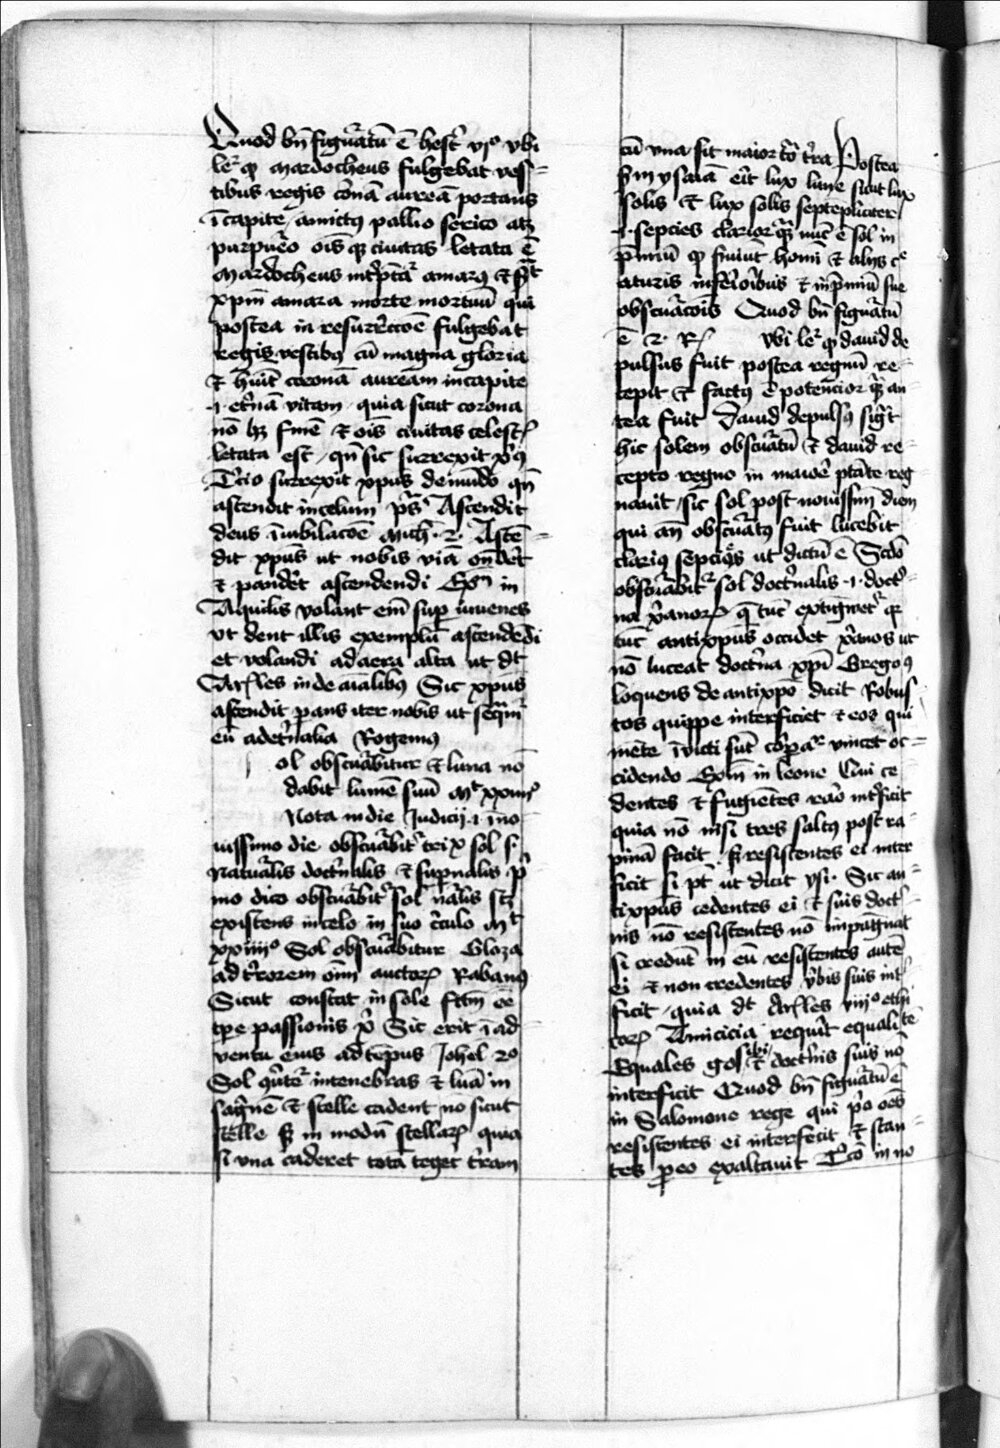 Quod bn̄ figuratū ē hest̄ vjº vbi
leꝛ ꝙ mardocheus fulgebat ves-
tibus regis conā aureā portans
ī capite / amictus pallio serico atꝫ
purpureo ois qꝫ ciuitas letata ē
Mardocheus int̄p̄tat̄ amarꝰ & sigt̄
xpm̄ amara morte mortuū qui
postea in resurrectōe fulgebat
regis vestibꝰ cū magna gloria
& huit coronā auream in capite
.i. et̄nā vitam / quia sicut corona
nō hꝫ finē & ois ciuitas celestꝭ
letata est / qn̄ sic surrexit xp̄ꝰ
T̄cio surrexit xpus de mūdo qn̄
ascendit in celum p̄s Ascendit
deus ī iubilacōe Mich .2. Ascē-
dit xpus ut nobis viā ondēt
& pandēt ascendendi Exm̄ in
Aquilis volant em̄ sup̄ iuuenes
ut dent illis exemplū ascendēdi
et volandi ad aera alta ut dt̄
Ar̄les in de aīalibꝰ Sic xpus
ascendit pans iter nobis ut seqm̄
eū ad et̄nalia Rogemꝰ
ol obscuabitur & luna nō
dabit lumē suū Mt̄ xxiiijº
Nota in die Judicij .i. ī no-
uissimo die obscuabit̄ trix sol s.
Naturalis doct̄nalis & supnalis p̄-
mo dico obscuabit̄ sol nālis scꝫ
existens in celo in suo c̄culo Mt̄
xxiiijº Sol obscuabitur Gloza
ad t̄rorem oīm auctorꝭ Rabanꝰ
Sicut constat in sole fc̄m ēē
tp̄e passionis xp̄i Sic erit ī ad-
uentu eius ad tēpus Johel 2º
Sol qūtet̄ in tenebras & luā in
sāgnē & stelle cadent nō sicut
stelle sꝫ in modū stellarꝭ quia
si vna caderet totā teget t̄ram
cū vna sit maior tō t̄ra Postea
sm̄ ysaiā erit lux lune sicut lux
solis & lux solis septepliciter
.i. sepcies clarior qꝫ nūc ē sol in
p̄miū ꝙ suiuit homī & alijs c̄e-
aturis inferioribus & in p̄miū sue
obscuacōis Quod bn̄ figuratū
ē 2. Rꝭ vbi leꝛ ꝙ dauid de-
pulsus fuit postea regnū re-
cepit & factꝰ ē potencior qꝫ an-
tea fuit Dauid depulsꝰ sigt̄
hic solem obscuatū & dauid re-
cepto regno in maiore ptāte reg-
nauit / sic sol post nouissim̄ diem
qui an̄ obscuratꝰ fuit lucebit
clariꝰ sepcies ut dictū ē Scdō
obscuabit̄ sol doct̄nalis .i. doct̄-
na xp̄ianorꝭ q̄ tūc extīguet̄ qꝛ
tūc antixpus occidet xp̄ianos ut
nō luceat doct̄na xpī Gregoꝰ
loquens de antixpō dicit Robus-
tos quippe interficiet & eos qui
mēte īuicti sūt corpālꝛ vincet oc-
cidendo Exm̄ in leone Qui ce-
dentes & fugiētes raro int̄ficit
quia nō nisi tres saltꝰ post ra-
pinā facit / sꝫ resistentes ei inter-
ficit si pt̄ ut dicit ysi. Sic an-
tixpus cedentes ei & suis doct̄-
nis nō resistentes nō impugnat
si credūt in eū resistentes autē
ei & non credentes v̄bis suis int̄-
ficit / quia dt̄ Ar̄les viijº ethi-
corꝭ Amicicia requīt equalitē
Equales gº sibi & doct̄nis suis nō
interficit Quod bn̄ figuratū ē
in Salomone rege qui p̄o oēs
resistentes ei interfecit & stan-
tes p eo exaltauit T̄cō in no